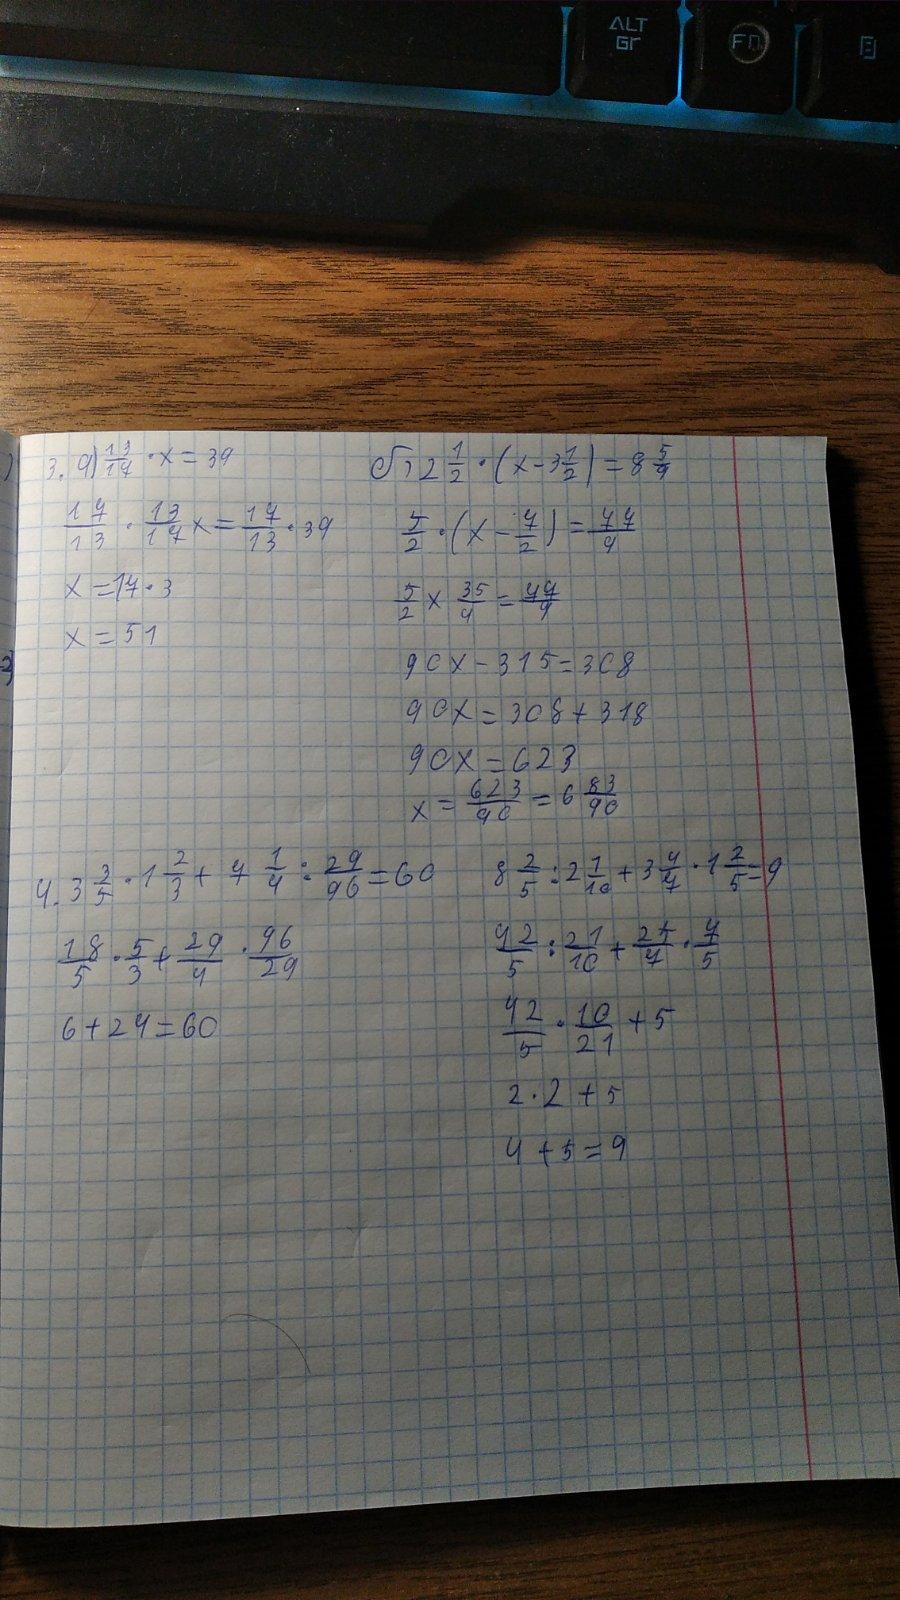 ALT
Gr
FN
3. a) 13/17 · x = 39
17/13 · 13/17 x = 17/13 · 39
x = 17 · 3
x = 51
б) 2 1/2 · (x - 3 1/2) = 8 5/9
5/2 · (x - 7/2) = 77/9
5/2 x 35/4 = 77/9
90x - 315 = 308
90x = 308 + 318
90x = 623
x = 623/90 = 6 83/90
4. 3 3/5 · 1 2/3 + 7 1/4 : 29/96 = 60
18/5 · 5/3 + 29/4 · 96/29
6 + 24 = 60
8 2/5 : 2 1/10 + 3 4/7 · 1 2/5 = 9
42/5 : 21/10 + 25/7 · 7/5
42/5 · 10/21 + 5
2 · 2 + 5
4 + 5 = 9